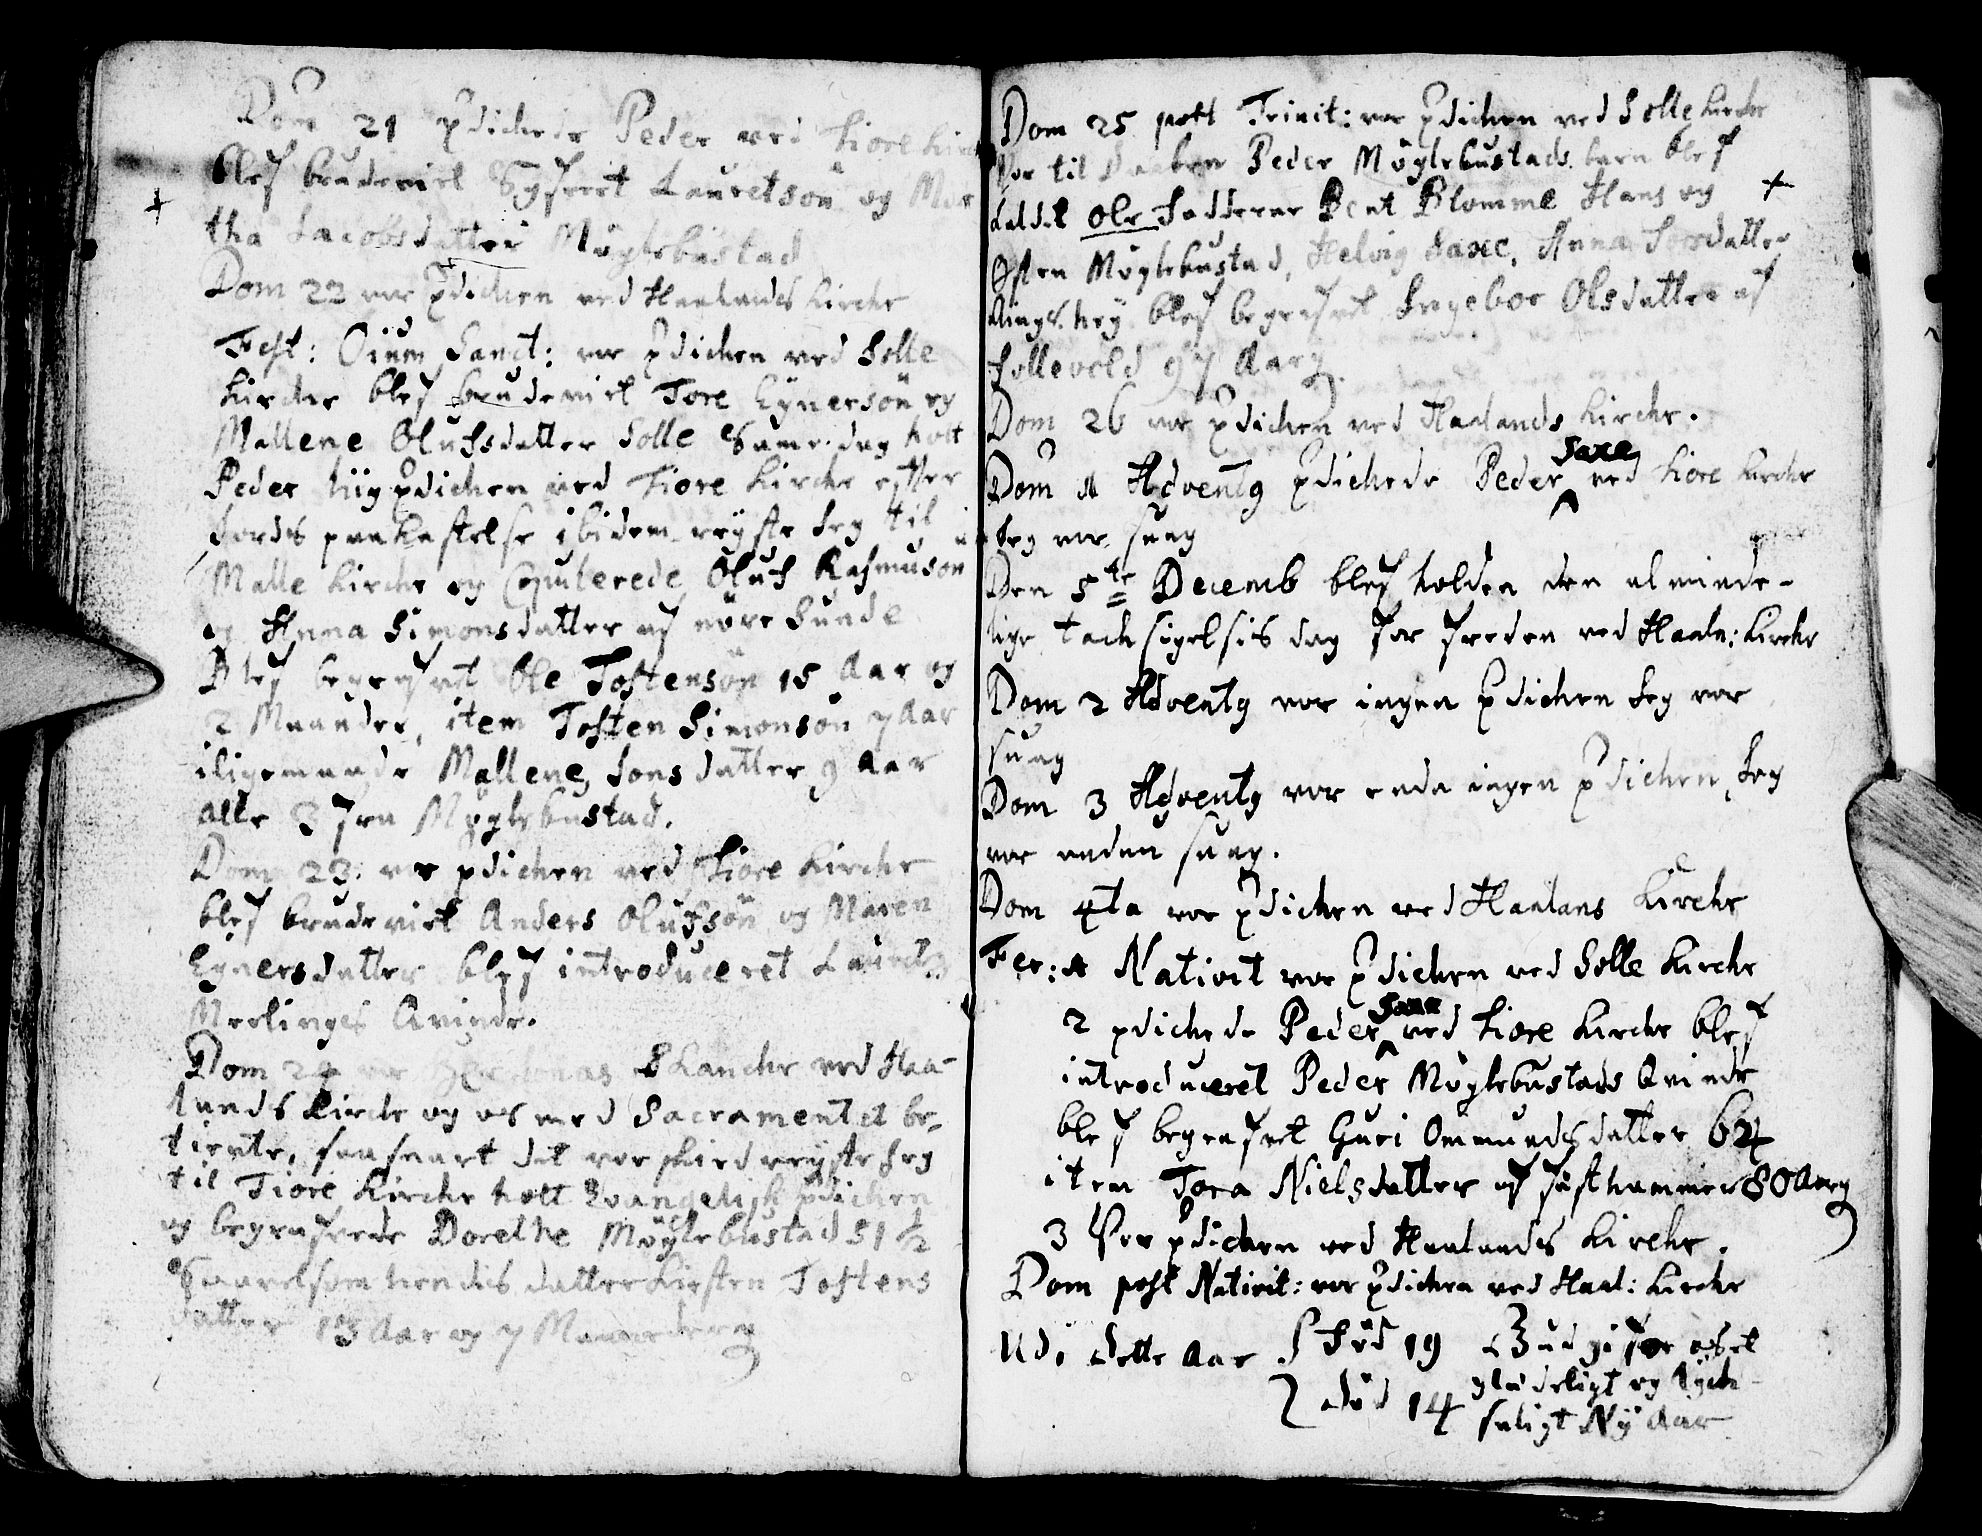 Dom 21 pdichede Peder ved Fiore Kirch
blef brudeviet Syfret Lauretsøn og Mar
tha Jacobsdatter Møglebustad
Dom 22 var pdichen ved Haalands Kirche
Fest: Oium Sanct: var pdichen ved Solle
Kirche blef brudeviet Tore Eynersøn og
Mallene Olufsdatter Solle Same dag holt
Peder hüg pdichen ved Fiore Kirche efter
Jords paakastelse ibidem reyste Jeg til
Malle Kirche og Copulerede Oluf Rasmuson
og Anna Simonsdatter af nøre Sunde
Blef begrafvet Ole Tostensøn 15 Aar og
2 Maander, item Tosten Simonsøn 7 Aar
iligemaade Mallene Jonsdatter 9 Aar
alle 3 fra Møglebustad.
Dom 23. var pdichen ved Fiore Kirche
blef brudeviet Anders Olufsøn og Maren
Eynersdatter blef introduceret Lauretz
Meelinges Qvinde.
Dom 24 var Her Jonas Schanche ved Haa-
lands Kirche og os med Sacramentet be-
tiente, saasnart det var skied reyste Jeg
til Fiore Kirche holt Evangelisk pdichen
og begrafvede Dorethe Møglebustad 51 ½
Saavelsom hendis datter Kirsten Tostens
datter 13 Aar og 7 Maaneder
Dom 25 post Trinit: var pdichen ved Solle Kirche
Var til Daaben Peder Møglebustads barn blef
kaldet Ole Fadderne Bent Blomme Hans og
Østen Møglebustad, Helvig Saxe, Anna Jonsdatter
blef begrafvet Ingebor Olsdatter af
Sollevold 97 Aar
Dom 26 var pdichen ved Haalands Kirche.
Dom 1 Advent pdichede Peder Saxe ved Fiore Kirche
Jeg var suag
Den 5te Decemb blef holden den alminde-
lige tachsigelsis dag for freden ved Haala: Kirche
Dom 2 Advent var ingen pdichen Jeg var
suag
Dom 3 Advent var enda ingen pdichen, Jeg
var endnu suag.
Dom 4ta var pdichen ved Haalans Kirche
Fer: 1 Nativit var pdichen ved Solle Kirche
2 pdichede Peder Saxe ved Fiore Kirche blef
introduceret Peder Møglebustads Qvinde
blef begrafvet Guri Ommundsdatter 64
item Tora Nielsdatter af 80 Aar
3 Var pdichen ved Haalands Kirche.
Dom post Nativit: var pdichen ved Haal: Kirche
Udi dette Aar Fød 19 Gud gifve os et
død 14 gladeligt og lyck-
saligt Ny Aar